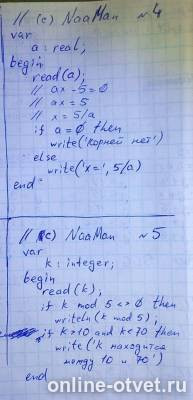 // (c) NaaMan №4
var
a : real;
begin
read(a);
// ax - 5 = 0
// ax = 5
// x = 5/a
if a = 0 then
write('Корней нет')
else
write('x=', 5/a)
end
// (c) NaaMan №5
var
k : integer;
begin
read(k);
if k mod 5 <> 0 then
writeln(k mod 5);
if k>10 and k<70 then
write('k находится
между 10 и 70')
end
online-otvet.ru